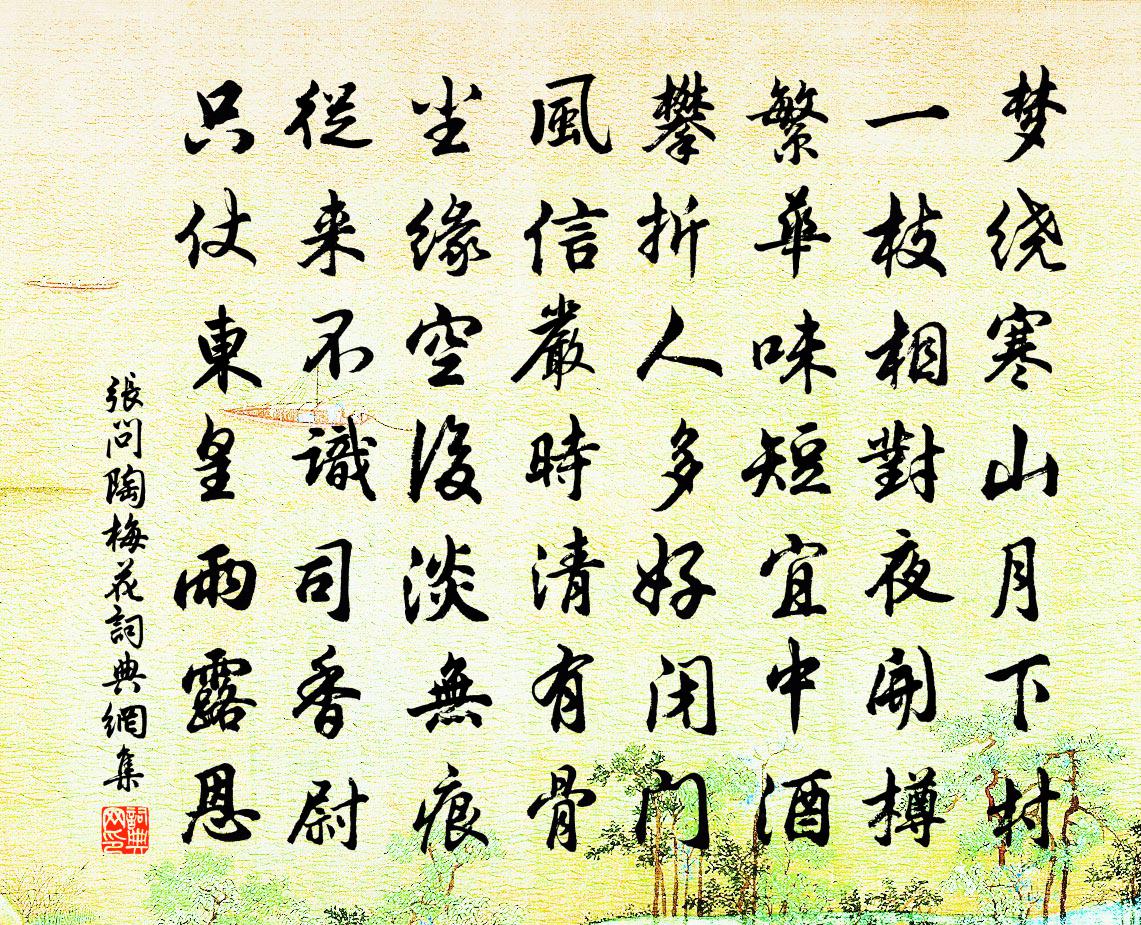 梦绕寒山月下村
一枝相對夜開樽
繁華味短宜中酒
攀折人多好闭门
風信嚴時清有骨
尘缘空後淡無痕
從来不識司香尉
只仗東皇雨露恩
張问陶梅花詞典網集
詞典
网印